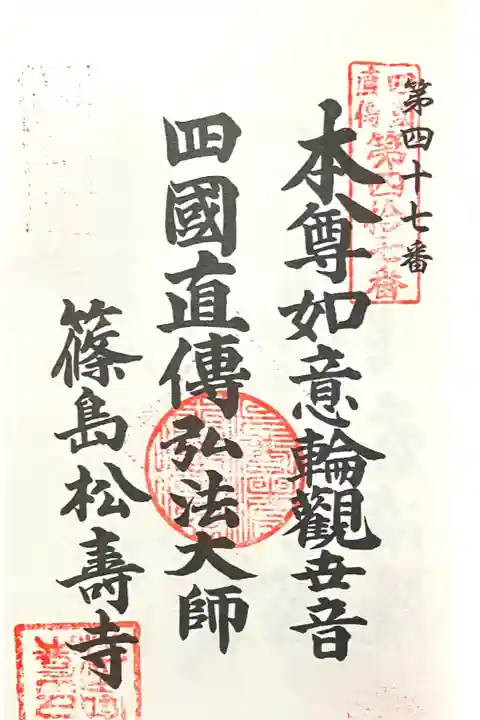 第四十七番
四国直伝
第四拾七番
本尊如意輪觀世音
四國直傳弘法大師
篠島松壽寺